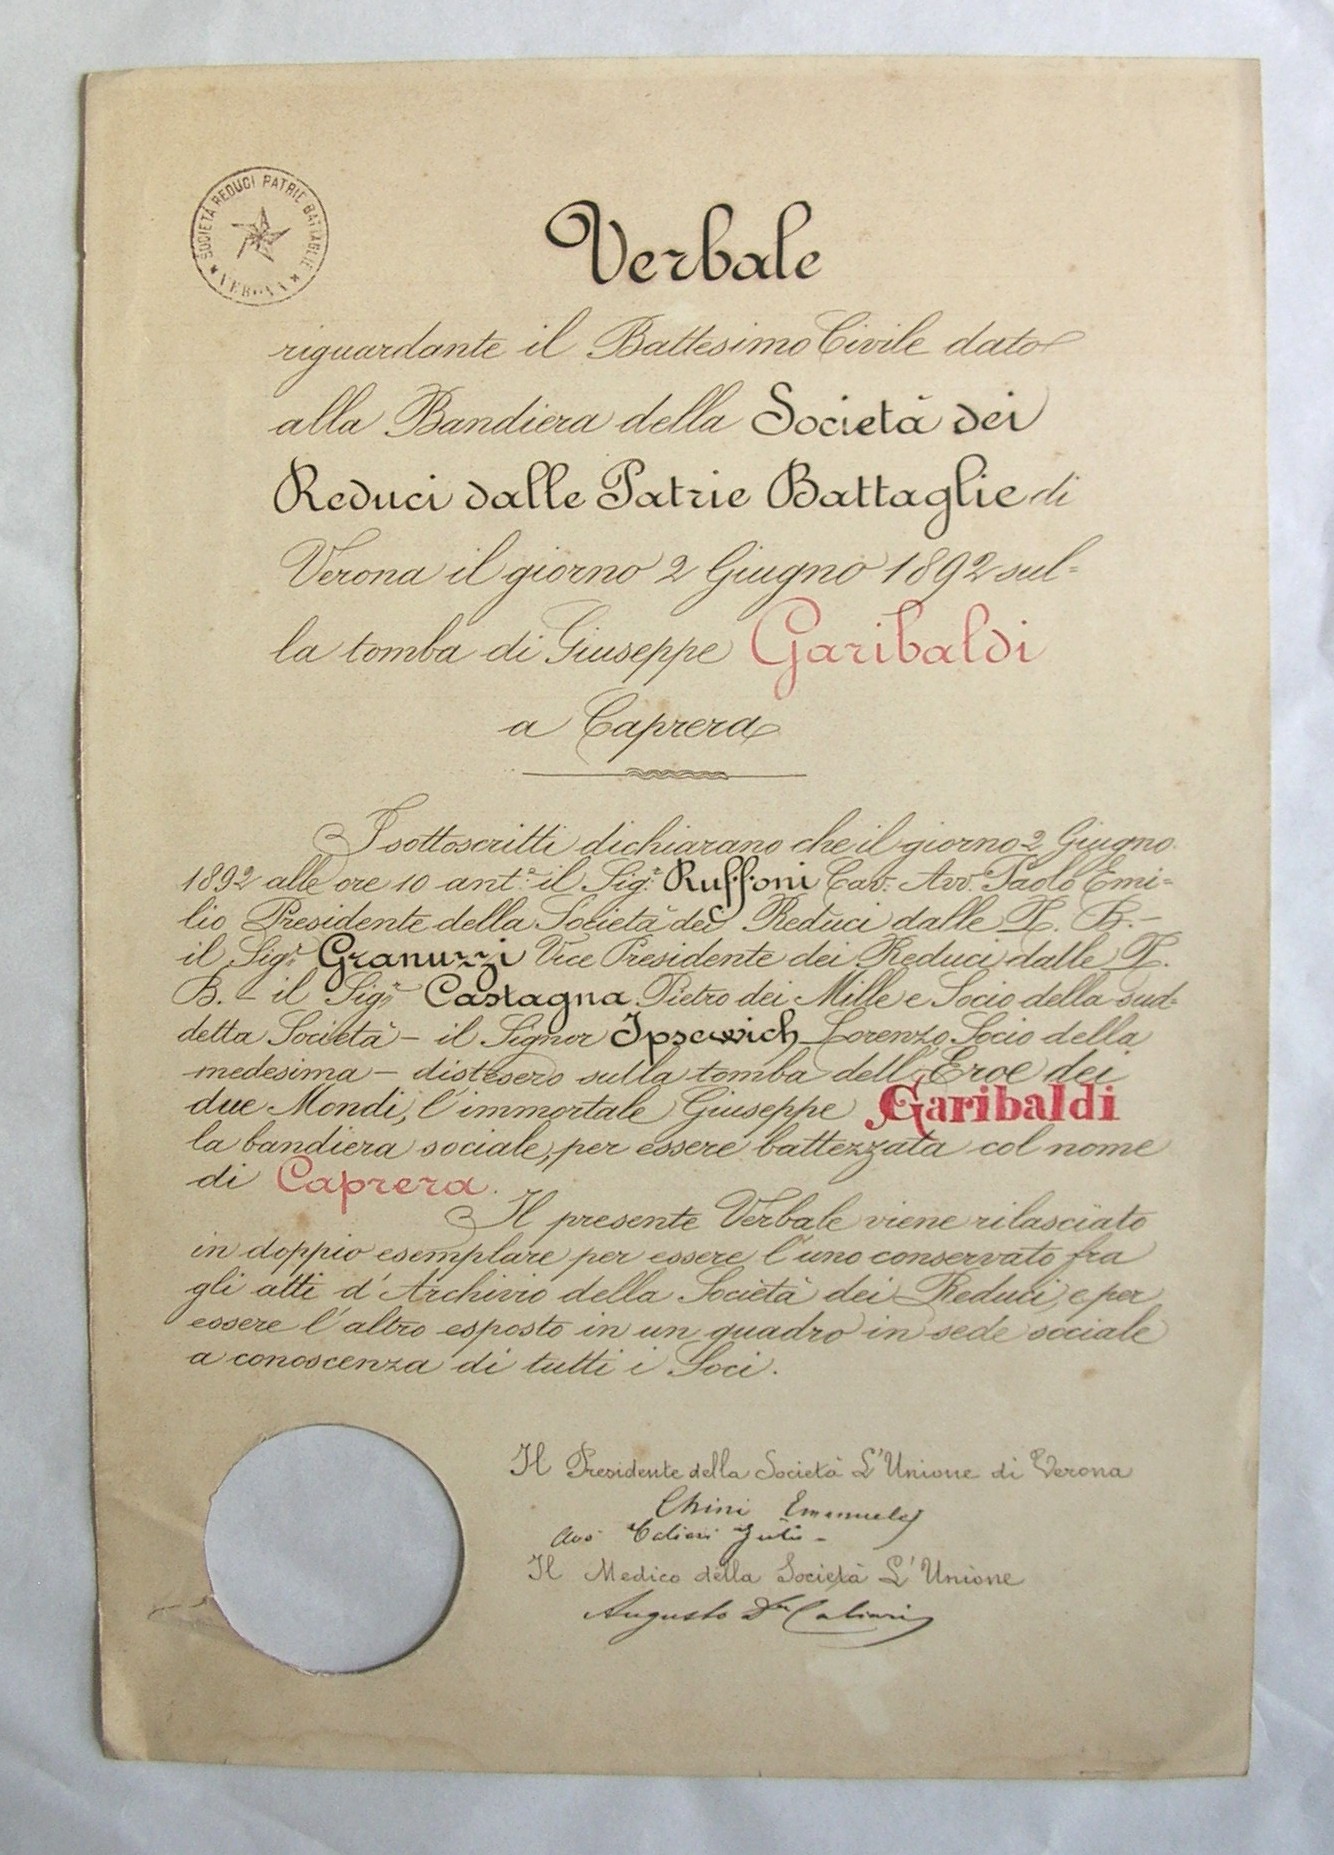 SOCIETÀ REDUCI PATRIE BATTAGLIE
★ VERONA ★
Verbale
riguardante il Battesimo Civile dato
alla Bandiera della Società dei
Reduci dalle Patrie Battaglie di
Verona il giorno 2 Giugno 1892 sul=
la tomba di Giuseppe Garibaldi
a Caprera
I sottoscritti dichiarano che il giorno 2 Giugno
1892 alle ore 10 ant.e il Sig.r Ruffoni Cav. Avv. Paolo Emi=
lio Presidente della Società dei Reduci dalle P. B. –
il Sig.r Granuzzi Vice Presidente dei Reduci dalle P.
B. – il Sig.r Castagna Pietro dei Mille e Socio della sud=
detta Società – il Signor Ipsewich Lorenzo Socio della
medesima – distesero sulla tomba dell'Eroe dei
due Mondi, l'immortale Giuseppe Garibaldi
la bandiera sociale, per essere battezzata col nome
di Caprera.
Il presente Verbale viene rilasciato
in doppio esemplare per essere l'uno conservato fra
gli atti d'Archivio della Società dei Reduci, e per
essere l'altro esposto in un quadro in sede sociale
a conoscenza di tutti i Soci.
Il Presidente della Società L'Unione di Verona
Chini Emanuele
Il Medico della Società L'Unione
Augusto Dr. Caliari